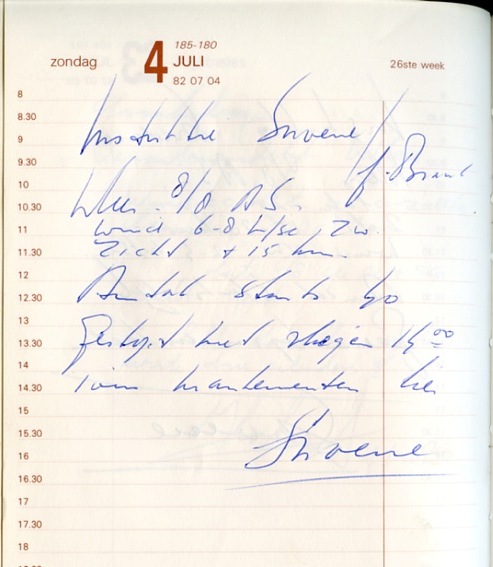 185-180
zondag 4 JULI 26ste week
82 07 04
8
8.30
9
Instructie
9.30
J. Brand
10
Weer 8/8 AS.
10.30
11
wind 6-8 m/sec ZW.
11.30
Zicht + 15 km.
12
Aantal starts 40
12.30
13
Gestopt met vliegen
13.30
14
14.30
15
15.30
16
16.30
17
17.30
18